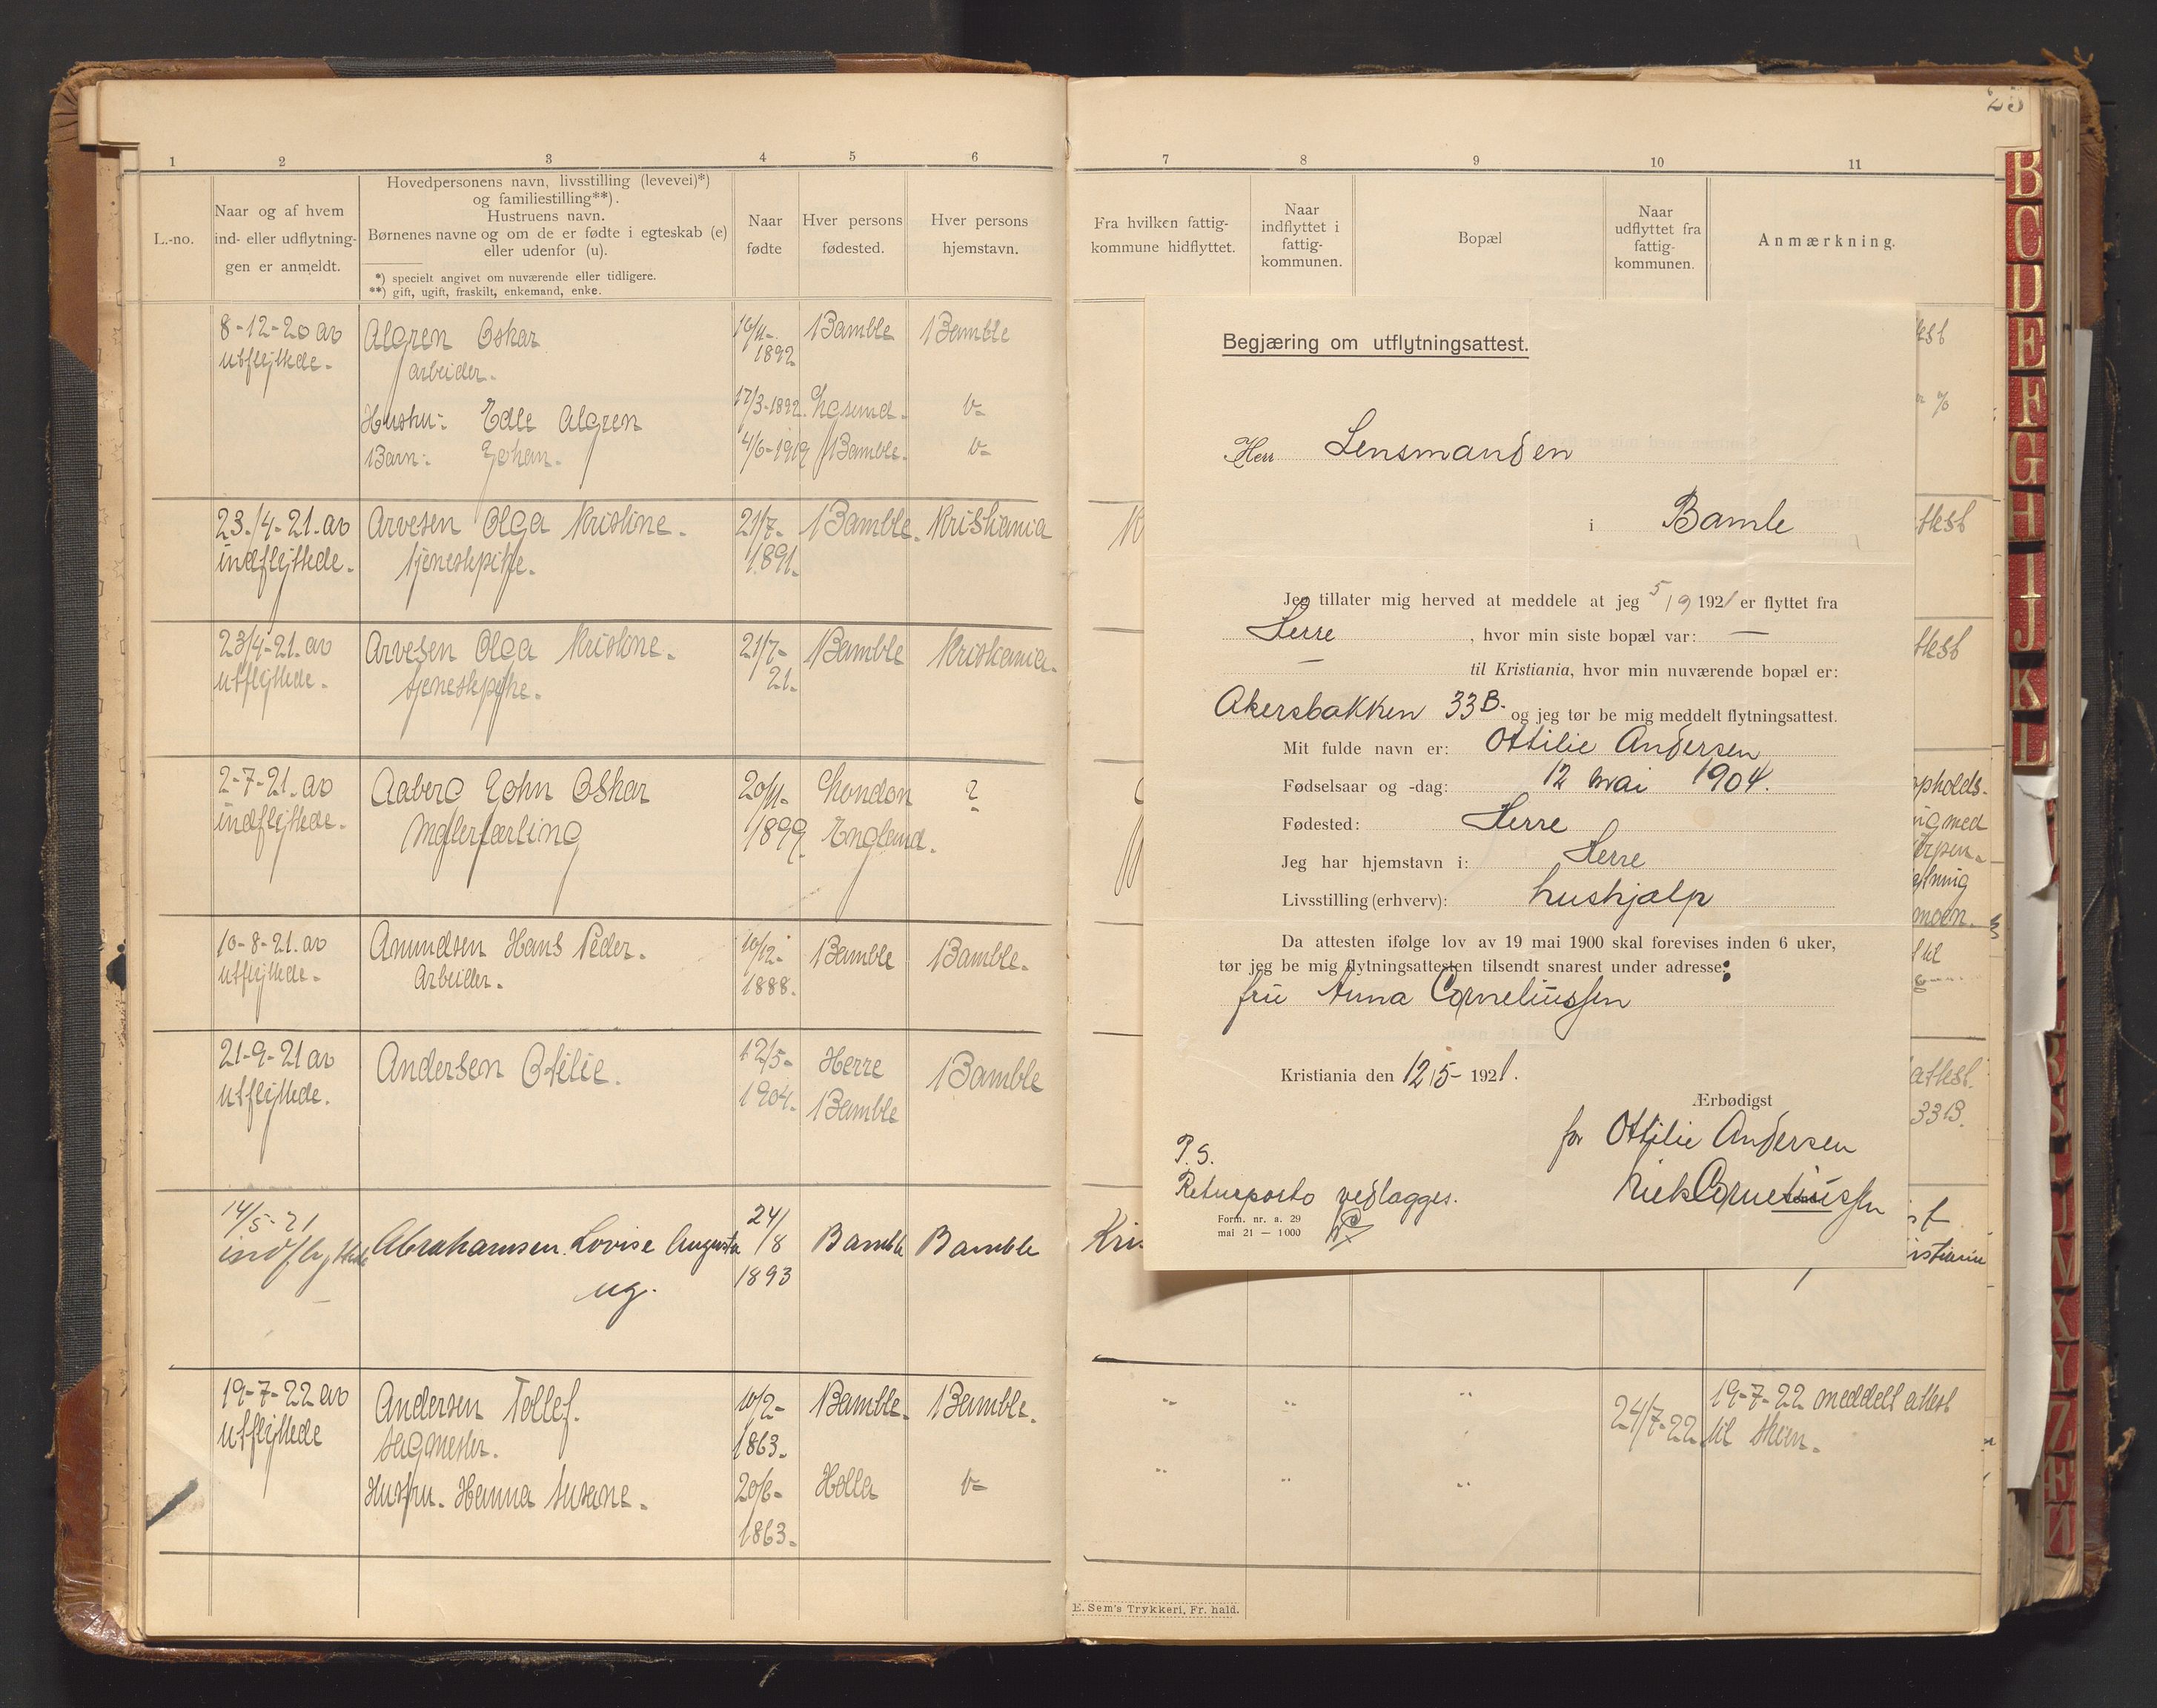 1 2 3 4 5 6
L.-no.
Naar og af hvem
ind- eller udflytnin-
gen er anmeldt.
Hovedpersonens navn, livsstilling (levevei)*)
og familiestilling**).
Hustruens navn.
Børnenes navne og om de er fødte i egteskab (e)
eller udenfor (u).
*) specielt angivet om nuværende eller tidligere.
**) gift, ugift, fraskilt, enkemand, enke.
Naar
fødte
Hver persons
fødested.
Hver persons
hjemstavn.
8-12-20 av Algren Oskar 16/11- Bamble Bamble
utflyttede. arbeider. 1892
Hustru: Edle Algren 17/3-1892. v-
Barn: Johan. 4/6-1919 Bamble. v-
23./4-21. av Arvesen Olga Kristine. 21/7- Bamble. Kristiania
indflyttede. tjenestepike. 1891.
23/4-21. av Arvesen Olga Kristine. 21/7- Bamble Kristiania.
utflyttede. tjenestepike. 21.
2-7-21. av Aaberg John Oskar 20/11- London ?
indflyttede. Møllerlærling 1899. England.
10-8-21. av Amundsen Hans Peder. 10/12- Bamble Bamble.
utflyttede. Arbeider. 1888.
21-9-21 av Andersen Otilie. 12/5- Herre Bamble
utflyttede. 1904. Bamble
14/5-21 Abrahamsen Lovise Augusta 24/8 Bamble Bamble
indflyttede ug. 1893
19-7-22 av Andersen Tollef. 10/2- Bamble. Bamble.
utflyttede sagmester. 1863.
Hustru. Hanna Susane. 20/6- Holla v-
1863.
25
7 8 9 10 11
Fra hvilken fattig-
kommune hidflyttet.
Naar
indflyttet i
fattig-
kommunen.
Bopæl
Naar
udflyttet fra
fattig-
kommunen.
Anmærkning.
Begjæring om utflytningsattest.
Herr Lensmanden
i Bamle
Jeg tillater mig herved at meddele at jeg 5/9 1921 er flyttet fra
Herre, hvor min siste bopæl var: —
— til Kristiania, hvor min nuværende bopæl er:
Akersbakken 33B. og jeg tør be mig meddelt flytningsattest.
Mit fulde navn er: Ottilie Andersen
Fødselsaar og -dag: 12 mai 1904.
Fødested: Herre
Jeg har hjemstavn i: Herre
Livsstilling (erhverv): hushjælp
Da attesten ifølge lov av 19 mai 1900 skal forevises inden 6 uker,
tør jeg be mig flytningsattesten tilsendt snarest under adresse:
fru Anna Corneliussen
Kristiania den 12/5- 1921.
Ærbødigst
for Ottilie Andersen
Corneliussen
P.S.
Returporto vedlægges.
Form. nr. a. 29
mai 21 — 1000
opholds-
33B.
Kris
24/7-22 19-7-22 meddelt attest
til Skien.
E. Sem's Trykkeri, Fr. hald.
B
C
D
E
F
G
H
I
J
K
L
X
Y
Z
Æ